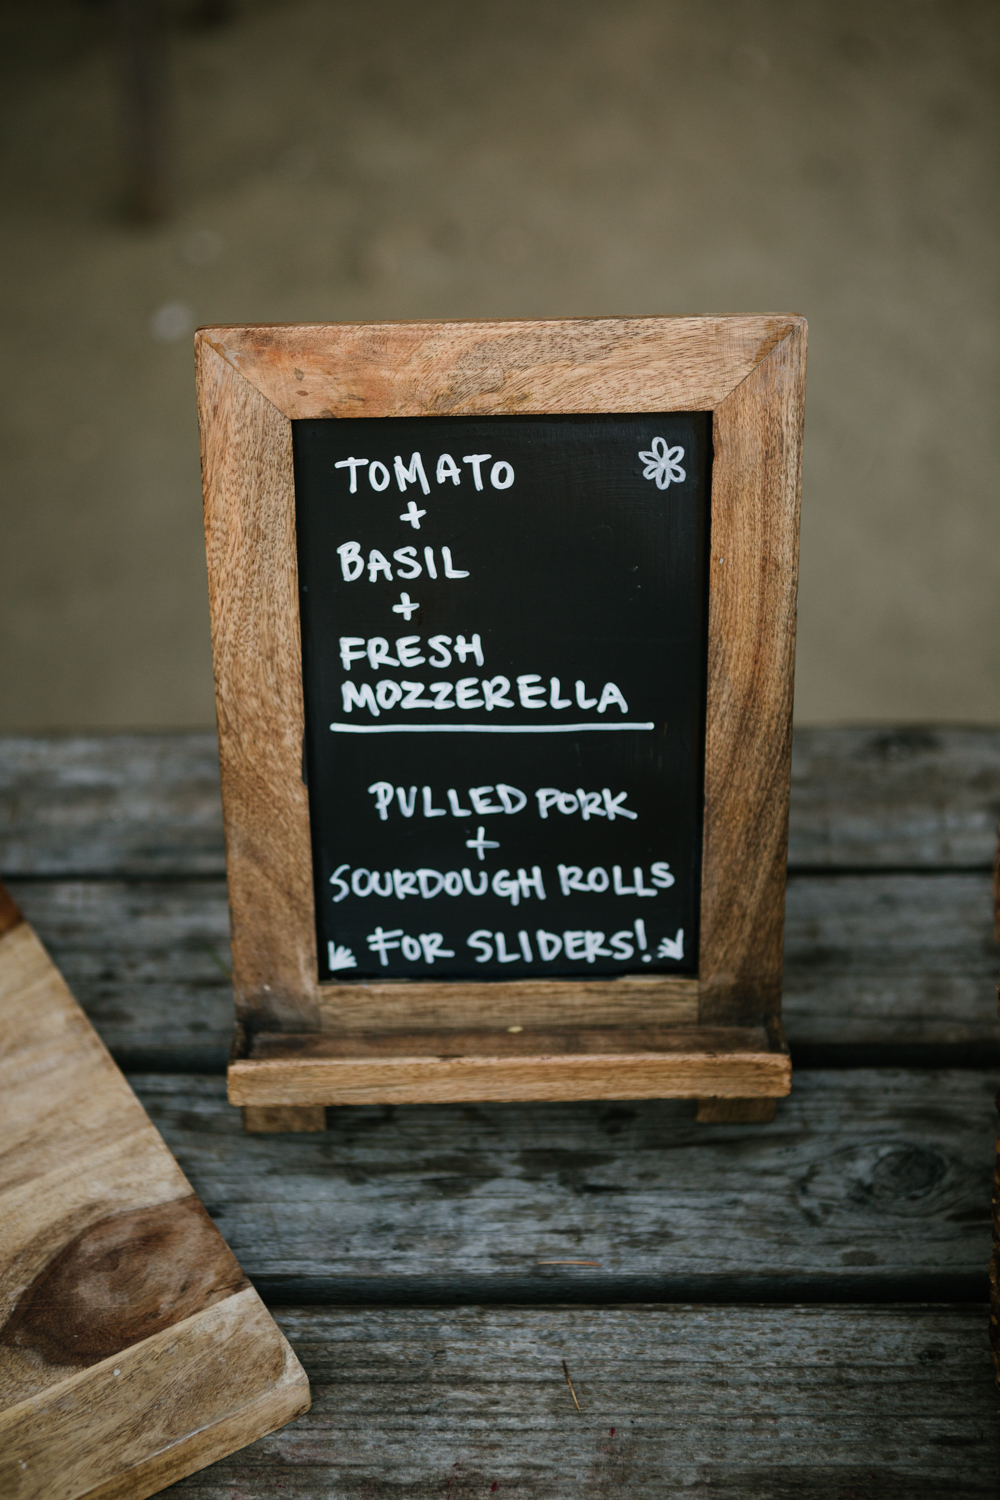 TOMATO
+
BASIL
+
FRESH
MOZZERELLA
PULLED PORK
+
SOURDOUGH ROLLS
FOR SLIDERS!